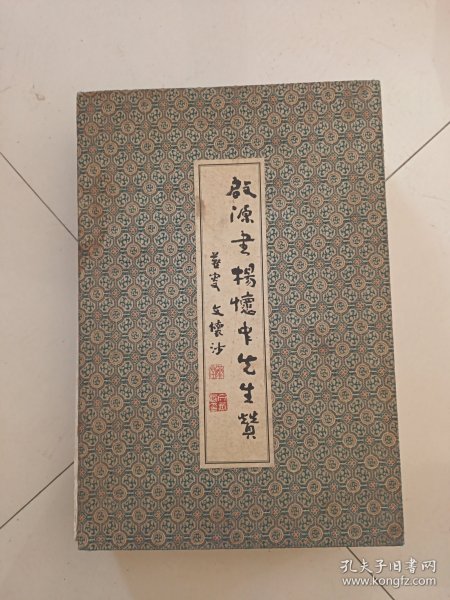 啟源書楊懷中先生贊
燕叟 文懷沙
孔夫子旧书网
www.kongfz.com